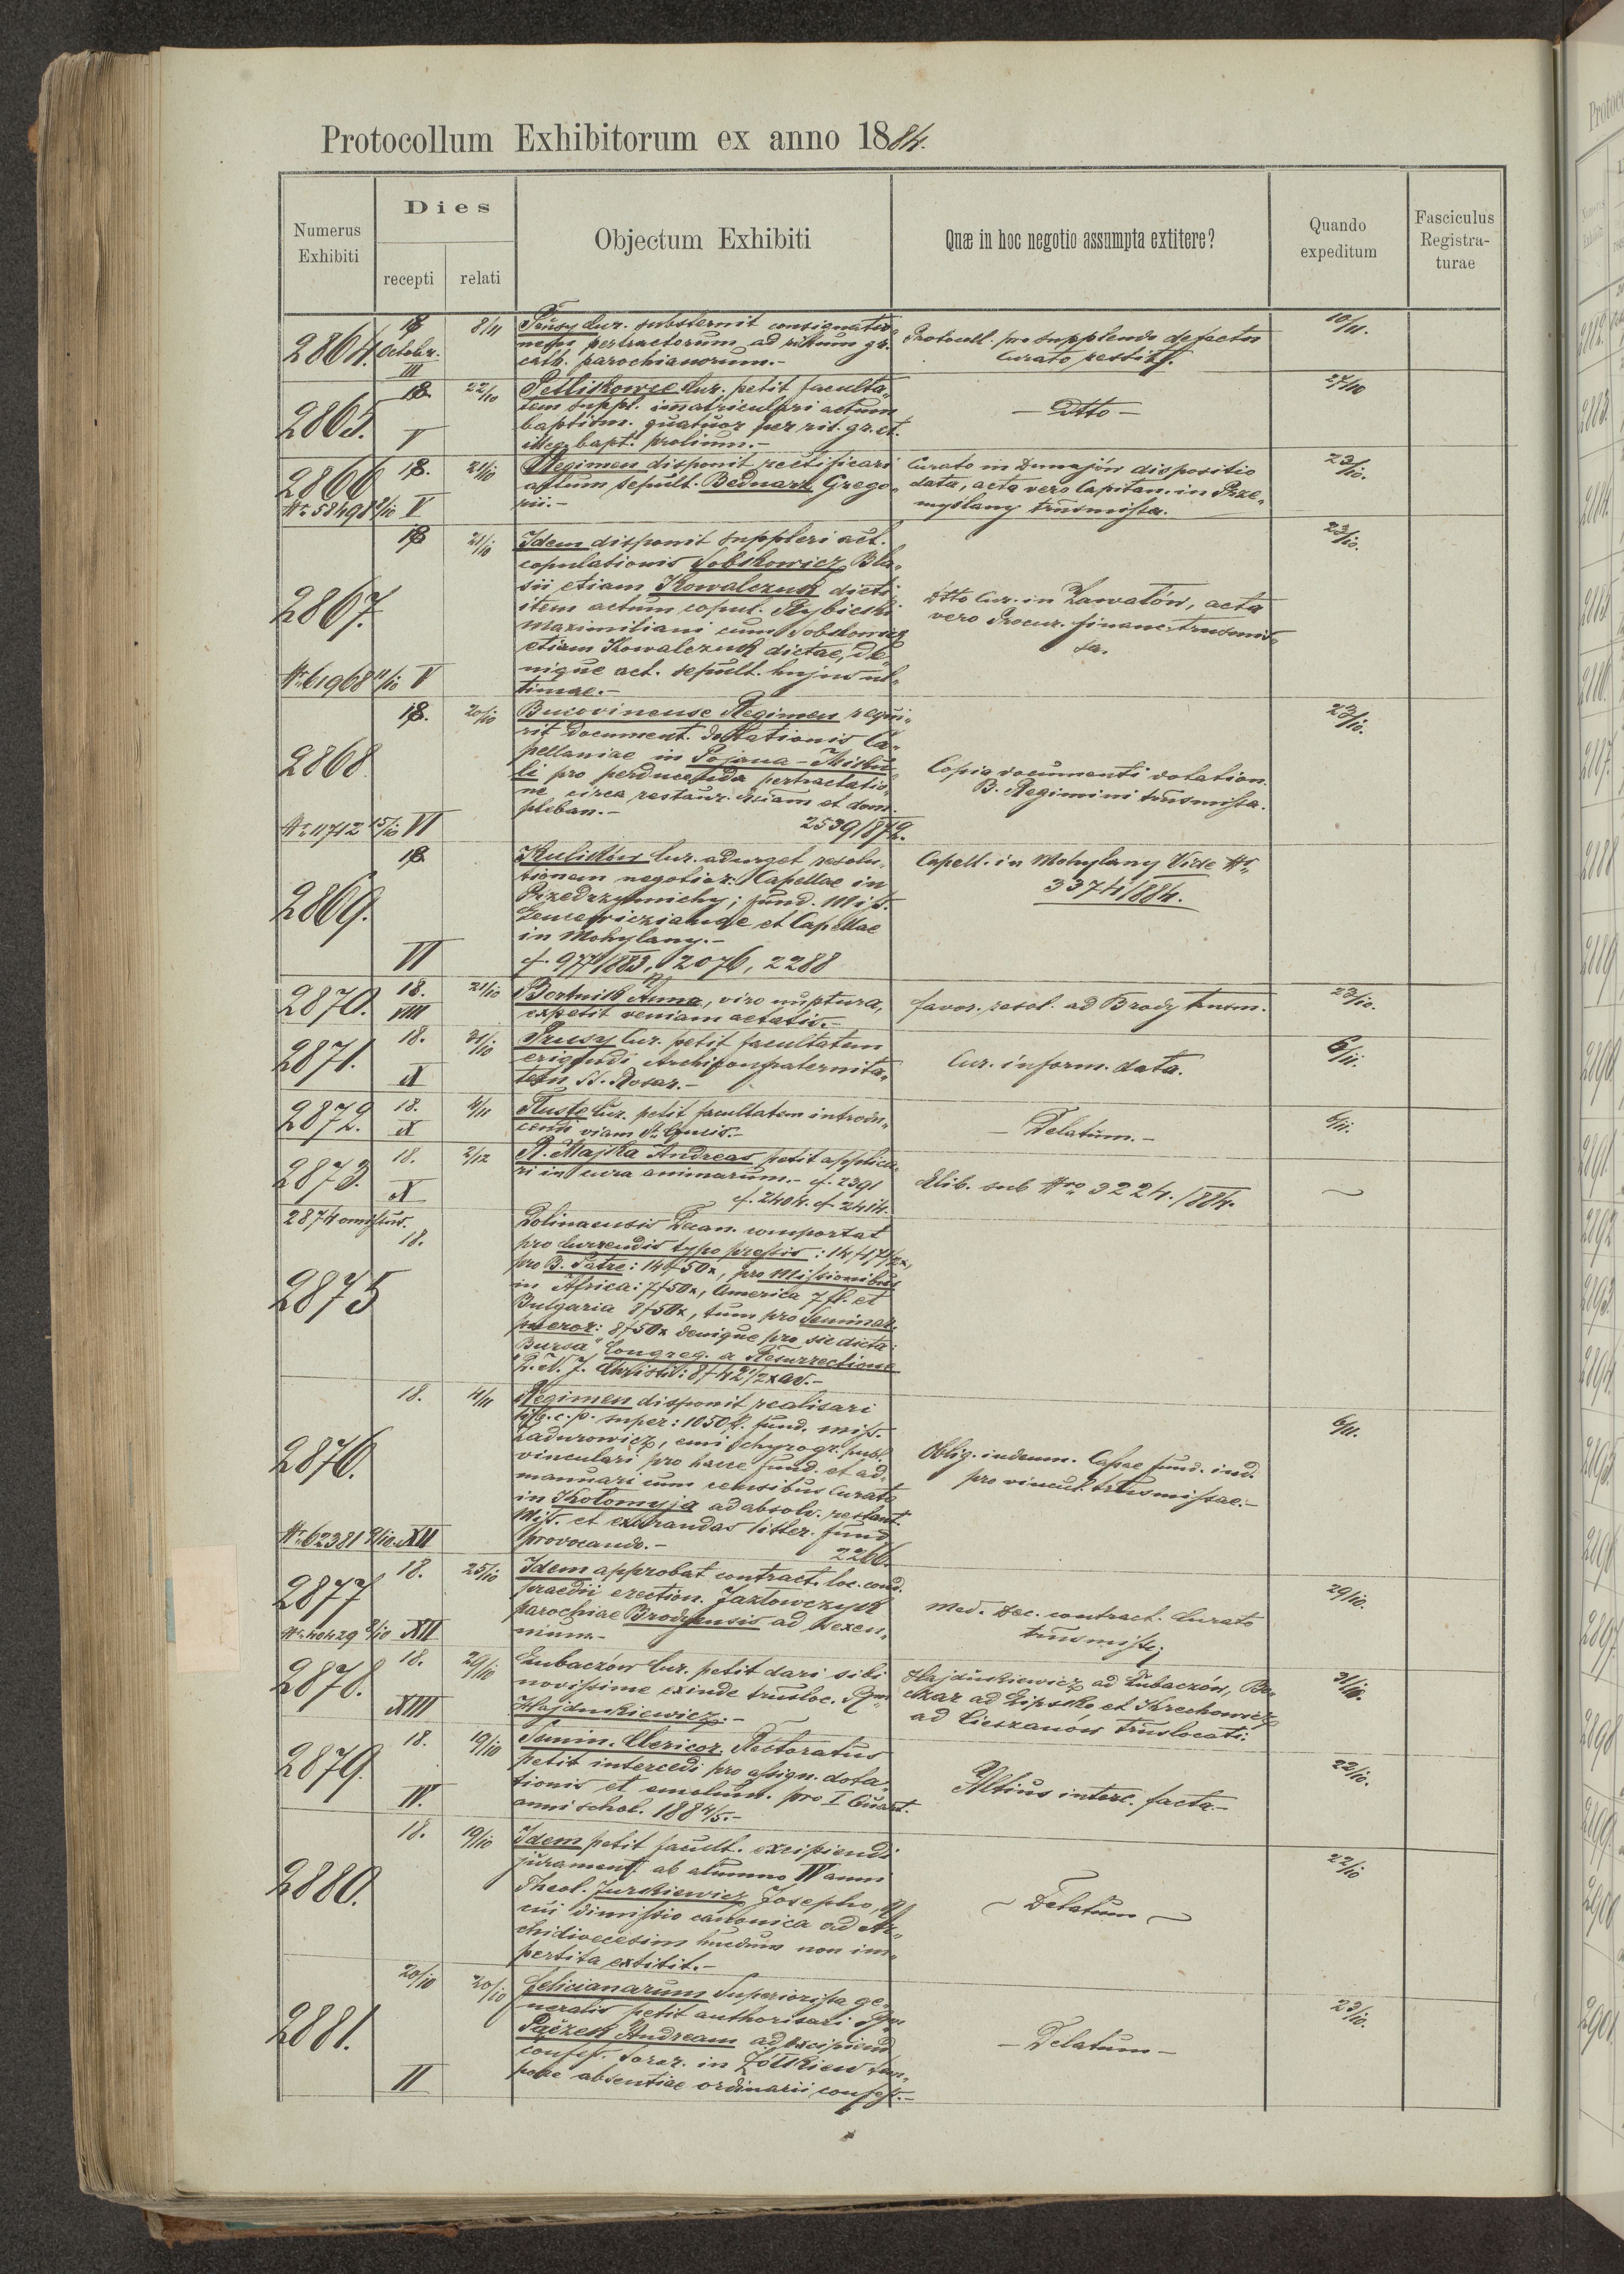 Protocollum Exhibitorum ex anno 1884.
Numerus Exhibiti
Dies
recepti
relati
Objectum Exhibiti
Quæ in hoc negotio assumpta extitere?
Quando expeditum
Fasciculus Registra-
turae
2864.
18
October.
III
8/11
Prusy Cur. substernit consignatio-
nem pertractorum ad ritum gr.
cath. parochianorum.-
Protocoll. pro supplendo defectu
Curato restit.
10/11.
2865.
18
V
22/10
Petlikowce Cur. petit faculta-
tem suppl. immatriculari actum
baptism. quatuor per rit. gr. ct.
illeg. bapt. prolium.-
- Dtto -
27/10
2866
Nr. 58498 8/10 V
18.
21/10
Regimen disponit rectificari
actum sepult. Bednarz Grego-
rii.-
Curato in Dunajów dispositio
data, acta vero Capitan. in Prze-
myślany trnsmissa.
23/10.
2867.
Nr. 61968 11/10 V
18
21/10
Idem disponit suppleri act.
copulationis Sobkowicz Bla-
sii etiam Kowalczuk dicti
item actum copul. Rybicki
Maximiliani cum Sobkowicz
etiam Kowalczuk dictae, de-
nique act. sepult. hujus ul-
timae.-
Dtto Cur. in Zawałów, acta
vero Procur. financ. trnsmis-
sa.
23/10.
2868
Nr. 11712 15/10 VI
18.
20/10
Bucovinense Regimen requi-
rit document. dotationis Ca-
pellaniae in Pojana-Miku-
li pro perducenda pertractatio-
ne circa restaur. Eccliam et dom.
pleban.-
2539/1872.
Copia documenti dotation.
B. Regimini trnsmissa.
23/10.
2869.
18
VI
Kulików Cur. adurget resolu-
tionem negotior: Capellae in
Przedrzymichy; fund. Miss.
et Capellae
in Mohylany.-
cf. 977/1883, 2076, 2288
Capell. in Mohylany Vide Nr.
3374/1884.
2870.
18.
VIII
21/10
Bortnik Anna, viro nuptura,
expetit veniam aetatis.-
favor. resol. ad Brody trnsm.
23/10.
2871.
18.
X
31/10
Prusy Cur. petit facultatem
erigendi Archiconfraternita-
tem SS. Rosar.-
Cur. inform. data.
6/11.
2872.
18.
X
4/11
Tłuste Cur. petit facultatem introdu-
cendi viam S. Crucis.-
- Delatum. -
6/11.
2873.
18.
X
2/12
R. Majka Andreas petit applica-
ri in cura animarum.- cf. 2391
cf. 2404. cf 2414.
Elib. sub Nro 3224./1884.
2874 omissus.
18.
2875
Dolinaensis Decan. comportat
pro currendis typo pressis: 14 f 17 1/2 x,
pro B. Patre: 14 f 50x, pro Missionibus
in Africa: 7 f 50x, America 7 fl. et
Bulgaria 8 f 50x, tum pro Seminar.
pueror: 8 f 50x denique pro sic dicta
Bursa Congreg. a Resurrectione
D. N. J. Christi: 8 f 42 1/2 x av.-
2876.
Nr. 62381 9/10 XII
18.
4/11
Regimen disponit realisari
c. p. super: 1050 fl. fund. miss.
Zadurowicz, emi chyrogr. publ.
vinculari pro hacce fund. et ad-
manuari cum censibus Curato
in Kołomyja ad absolv. restant.
Miss. et extrandas litter. fund
provocando.-
2266.
Oblig. indemn. Capae fund. ind.
pro vincul. trnsmissae.-
6/11.
2877
Nr. 40429 9/10 XII
18.
25/10
Idem approbat contract. loc. cond.
praedii erection. Jazłowczyk
parochiae Brodyensis ad sexen-
nium.-
Med. Dec. contract. Curato
trnsmiss.
29/10.
2878.
18.
XIII
29/10
Lubaczów Cur. petit dari sibi
novissime exinde trnsloc. Rm
Hajdukiewicz.-
Hajdukiewicz ad Lubaczów, Be-
czar ad Lipsko et Krechowicz
ad Cieszanów trnslocati.
31/10.
2879.
18.
IV.
19/10
Semin. Clericor. Rectoratus
petit intercedi pro assign. dota-
tionis et emolum. pro I Quart.
anni schol. 1884/5.-
Altius interc. facta.-
22/10.
2880.
18.
19/10
Idem petit facult. excipiendi
jurament. ab alumno IV anni
Theol. Jurkiewicz Josepho,
cui dimissio canonica ad Ar-
chidioecesim huedum non im-
pertita extitit.-
~ Delatum ~
22/10
2881.
20/10
II
20/10
Felicianarum Superiorissa ge-
neralis petit authorisari Rm
Pączek Andream ad excipiend
confess. soror. in Żółkiew tem-
pore absentiae ordinarii confess.-
- Delatum -
23/10.